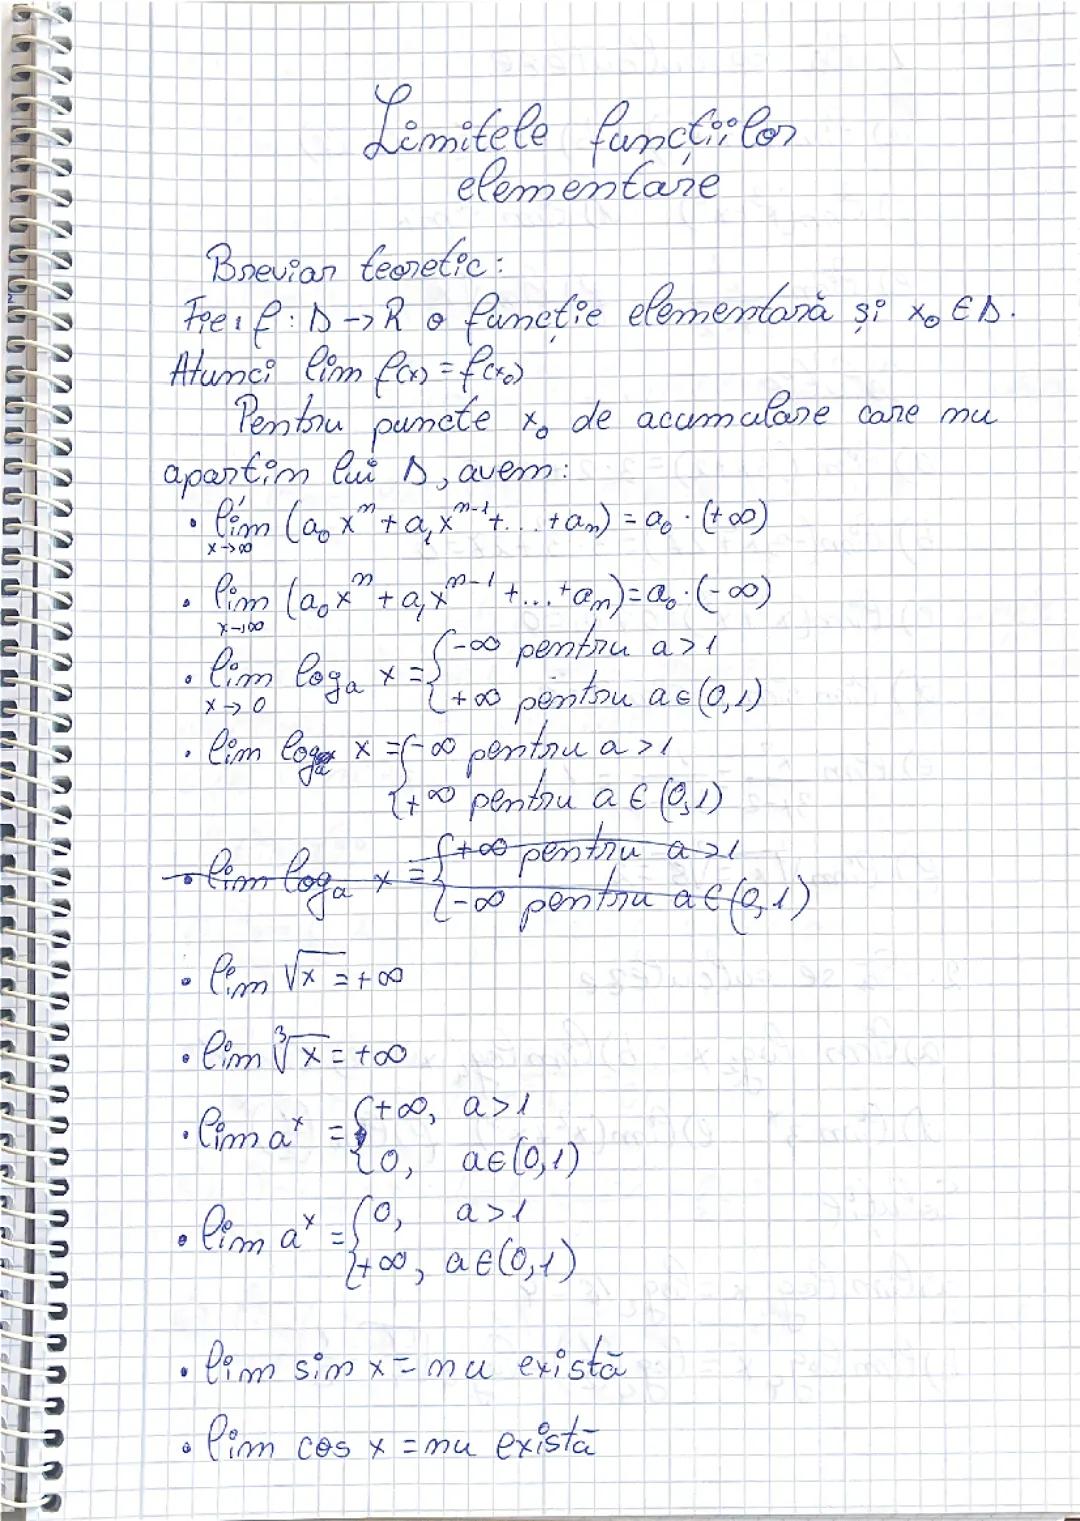 Limitele funcțiilor
elementare
Breviar teoretic:
Fie: f: D → R o funcție elementară și x₀ ∈ D.
Atunci lim f(x) = f(x₀)
Pentru puncte x₀ de acumulare care nu
aparțin lui D, avem:
• lim (a₀xⁿ + a₁xⁿ⁻¹ + ... + aₙ) = a₀ · (+∞)
x→∞
• lim (a₀xⁿ + a₁xⁿ⁻¹ + ... + aₙ) = a₀ · (-∞)
x→∞
• lim logₐ x = { -∞ pentru a > 1
x→0 { +∞ pentru a ∈ (0,1)
• lim logₐ x = { -∞ pentru a > 1
{ +∞ pentru a ∈ (0,1)
• lim logₐ x = { +∞ pentru a > 1
{ -∞ pentru a ∈ (0,1)
• lim √x = +∞
• lim ³√x = +∞
• lim aˣ = { +∞, a > 1
{ 0, a ∈ (0,1)
• lim aˣ = { 0, a > 1
{ +∞, a ∈ (0,1)
• lim sin x = nu există
• lim cos x = nu există